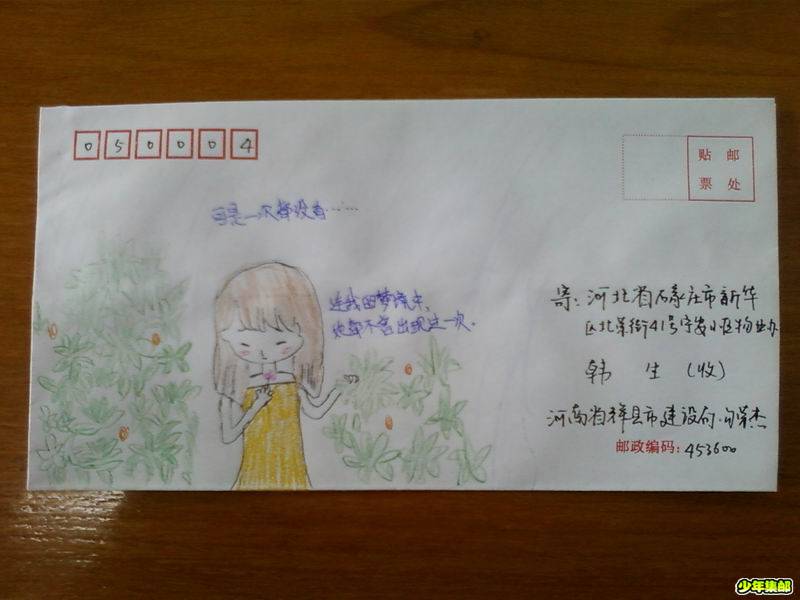 050004
贴 邮
票 处
可是一次都没有……
连我的梦境中,
她都不肯出现过一次。
寄:河北省石家庄市新华
区北荣街41号宇安小区物业办
韩 生 (收)
河南省辉县市建设局 荣杰
邮政编码:453600
少年集邮